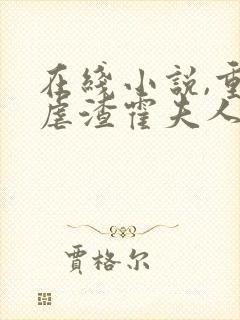 在线小说,重
虐渣霍夫人
賈格尔